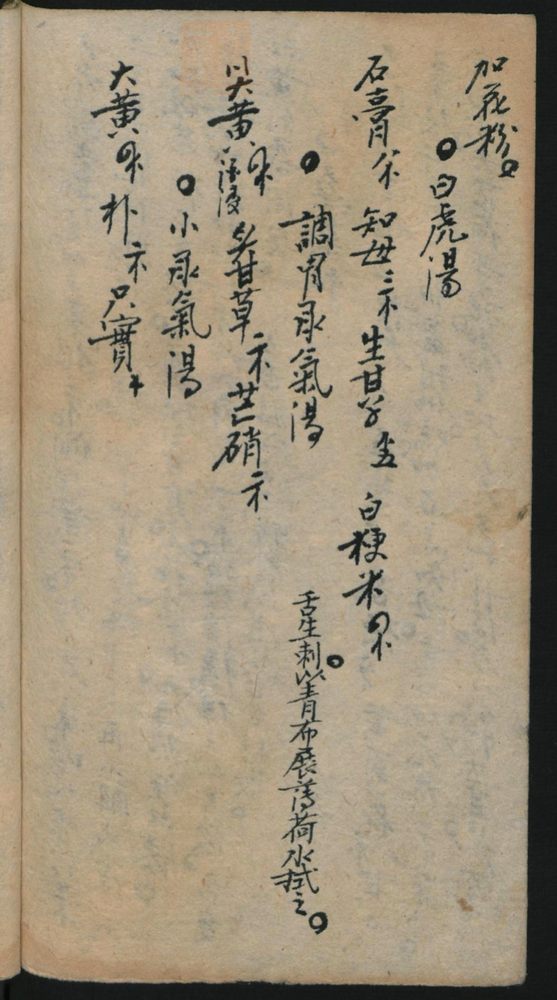 加花粉。
○白虎湯
石膏 知母 生甘草 白粳米
○調胃承氣湯
舌生刺以青布蘸薄荷水拭之。
大黃 酒浸 炙甘草 芒硝
○小承氣湯
大黃 朴 只實